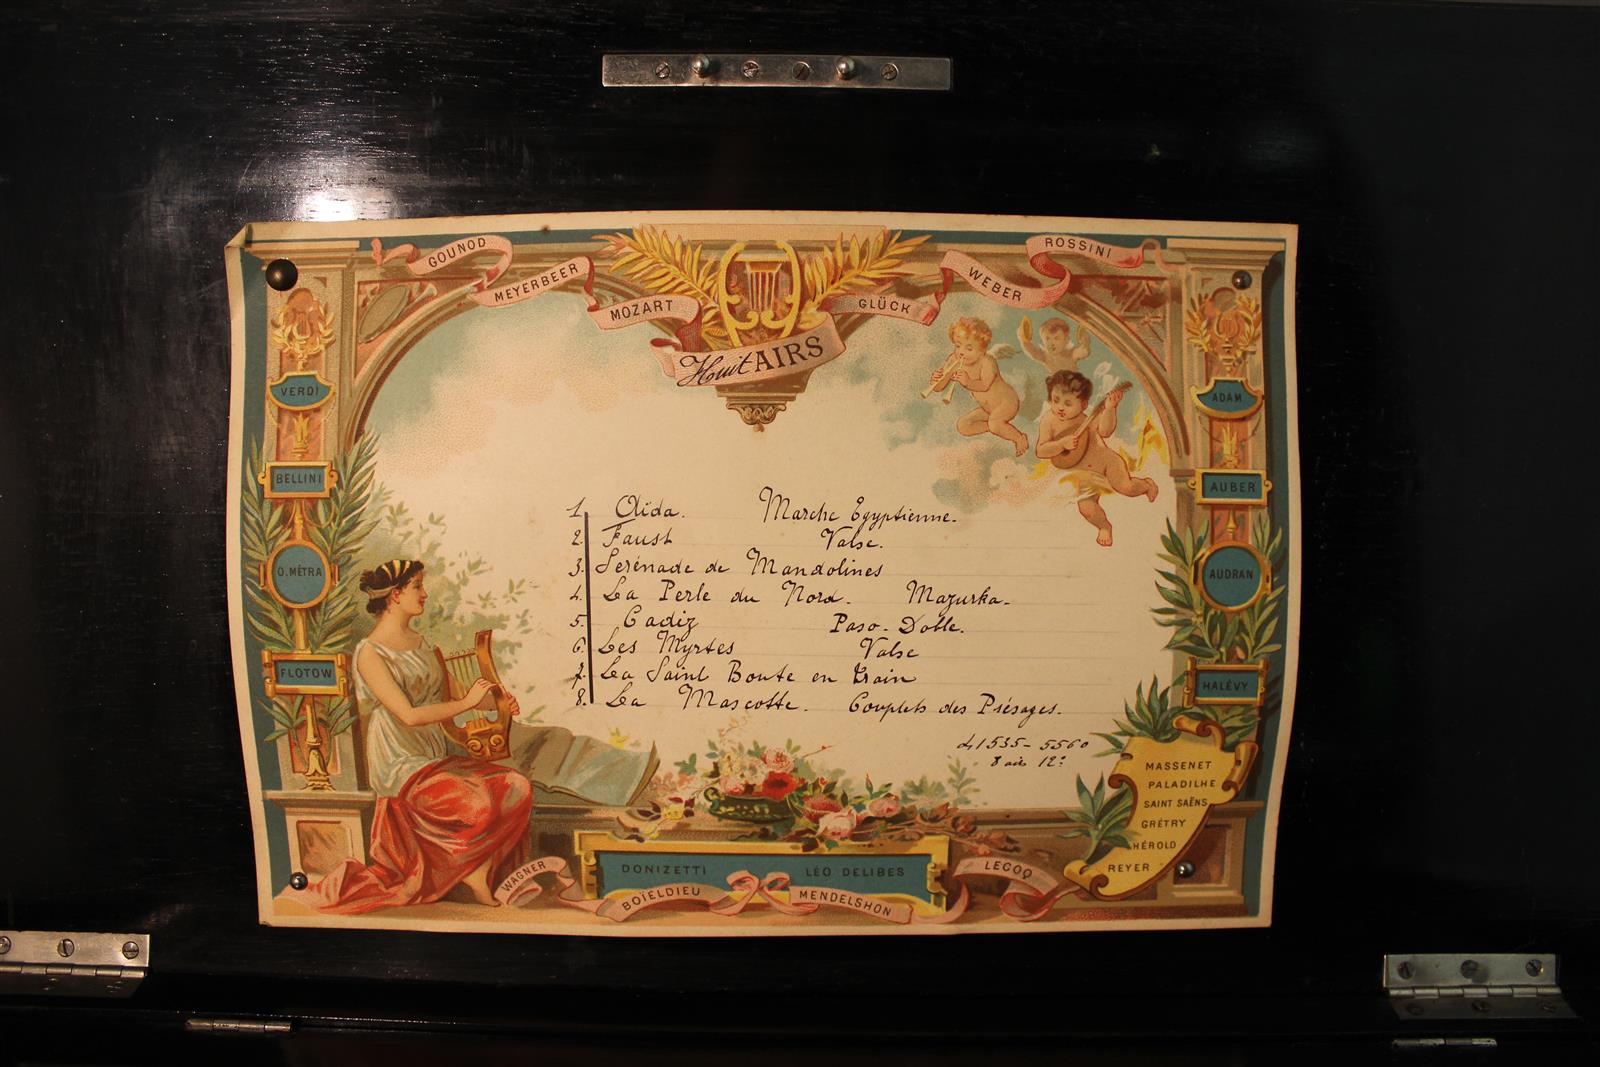 GOUNOD
MEYERBEER
MOZART
GLÜCK
WEBER
ROSSINI
Huit AIRS
VERDI
BELLINI
O. MÉTRA
FLOTOW
ADAM
AUBER
AUDRAN
HALÉVY
1. Aïda. Marche Egyptienne.
2. Faust Valse.
3. Serénade de Mandolines
4. La Perle du Nord. Mazurka.
5. Cadiz Paso-Doble.
6. Les Myrtes Valse
7. La Saint Boute en Train
8. La Mascotte. Couplets des Présages.
41535-5560
8 airs 12:
MASSENET
PALADILHE
SAINT SAËNS
GRÉTRY
HÉROLD
REYER
WAGNER
DONIZETTI LÉO DELIBES
BOÏELDIEU
MENDELSHON
LECOQ